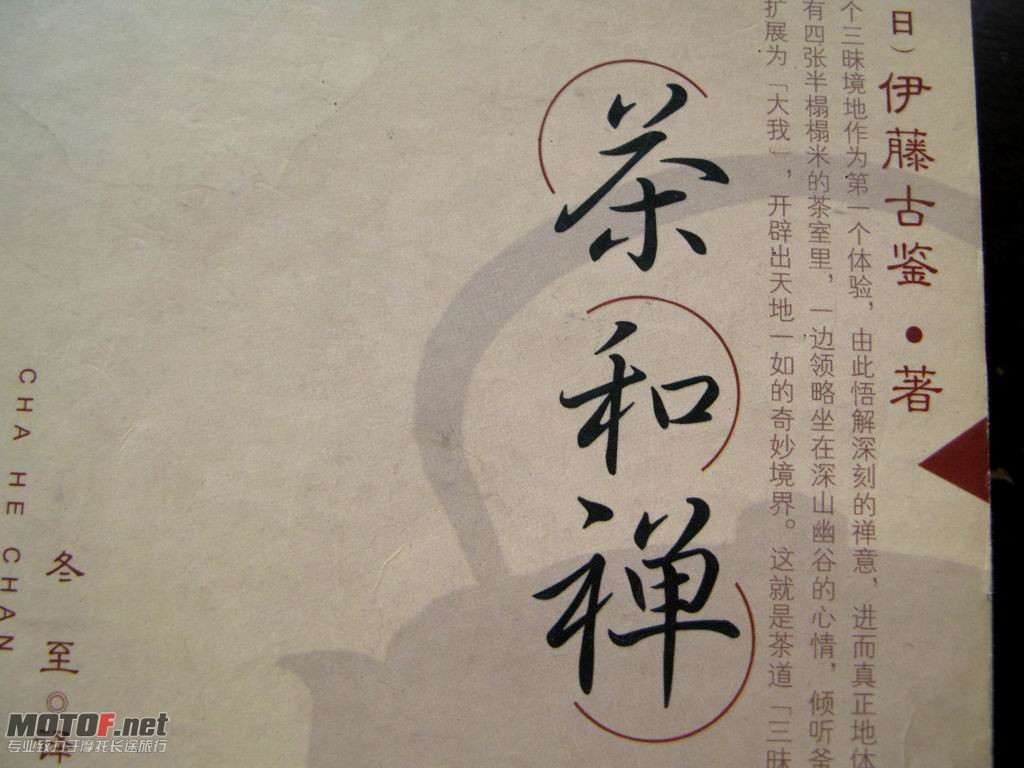 日）伊藤古鉴•著
个三昧境地作为第一个体验，由此悟解深刻的禅意，进而真正地体
有四张半榻榻米的茶室里，一边领略坐在深山幽谷的心情，倾听釜
扩展为「大我」，开辟出天地一如的奇妙境界。这就是茶道「三昧
茶和禅
冬至◎译
CHA HE CHAN
MOTOF.net
专业致力于摩托长途旅行